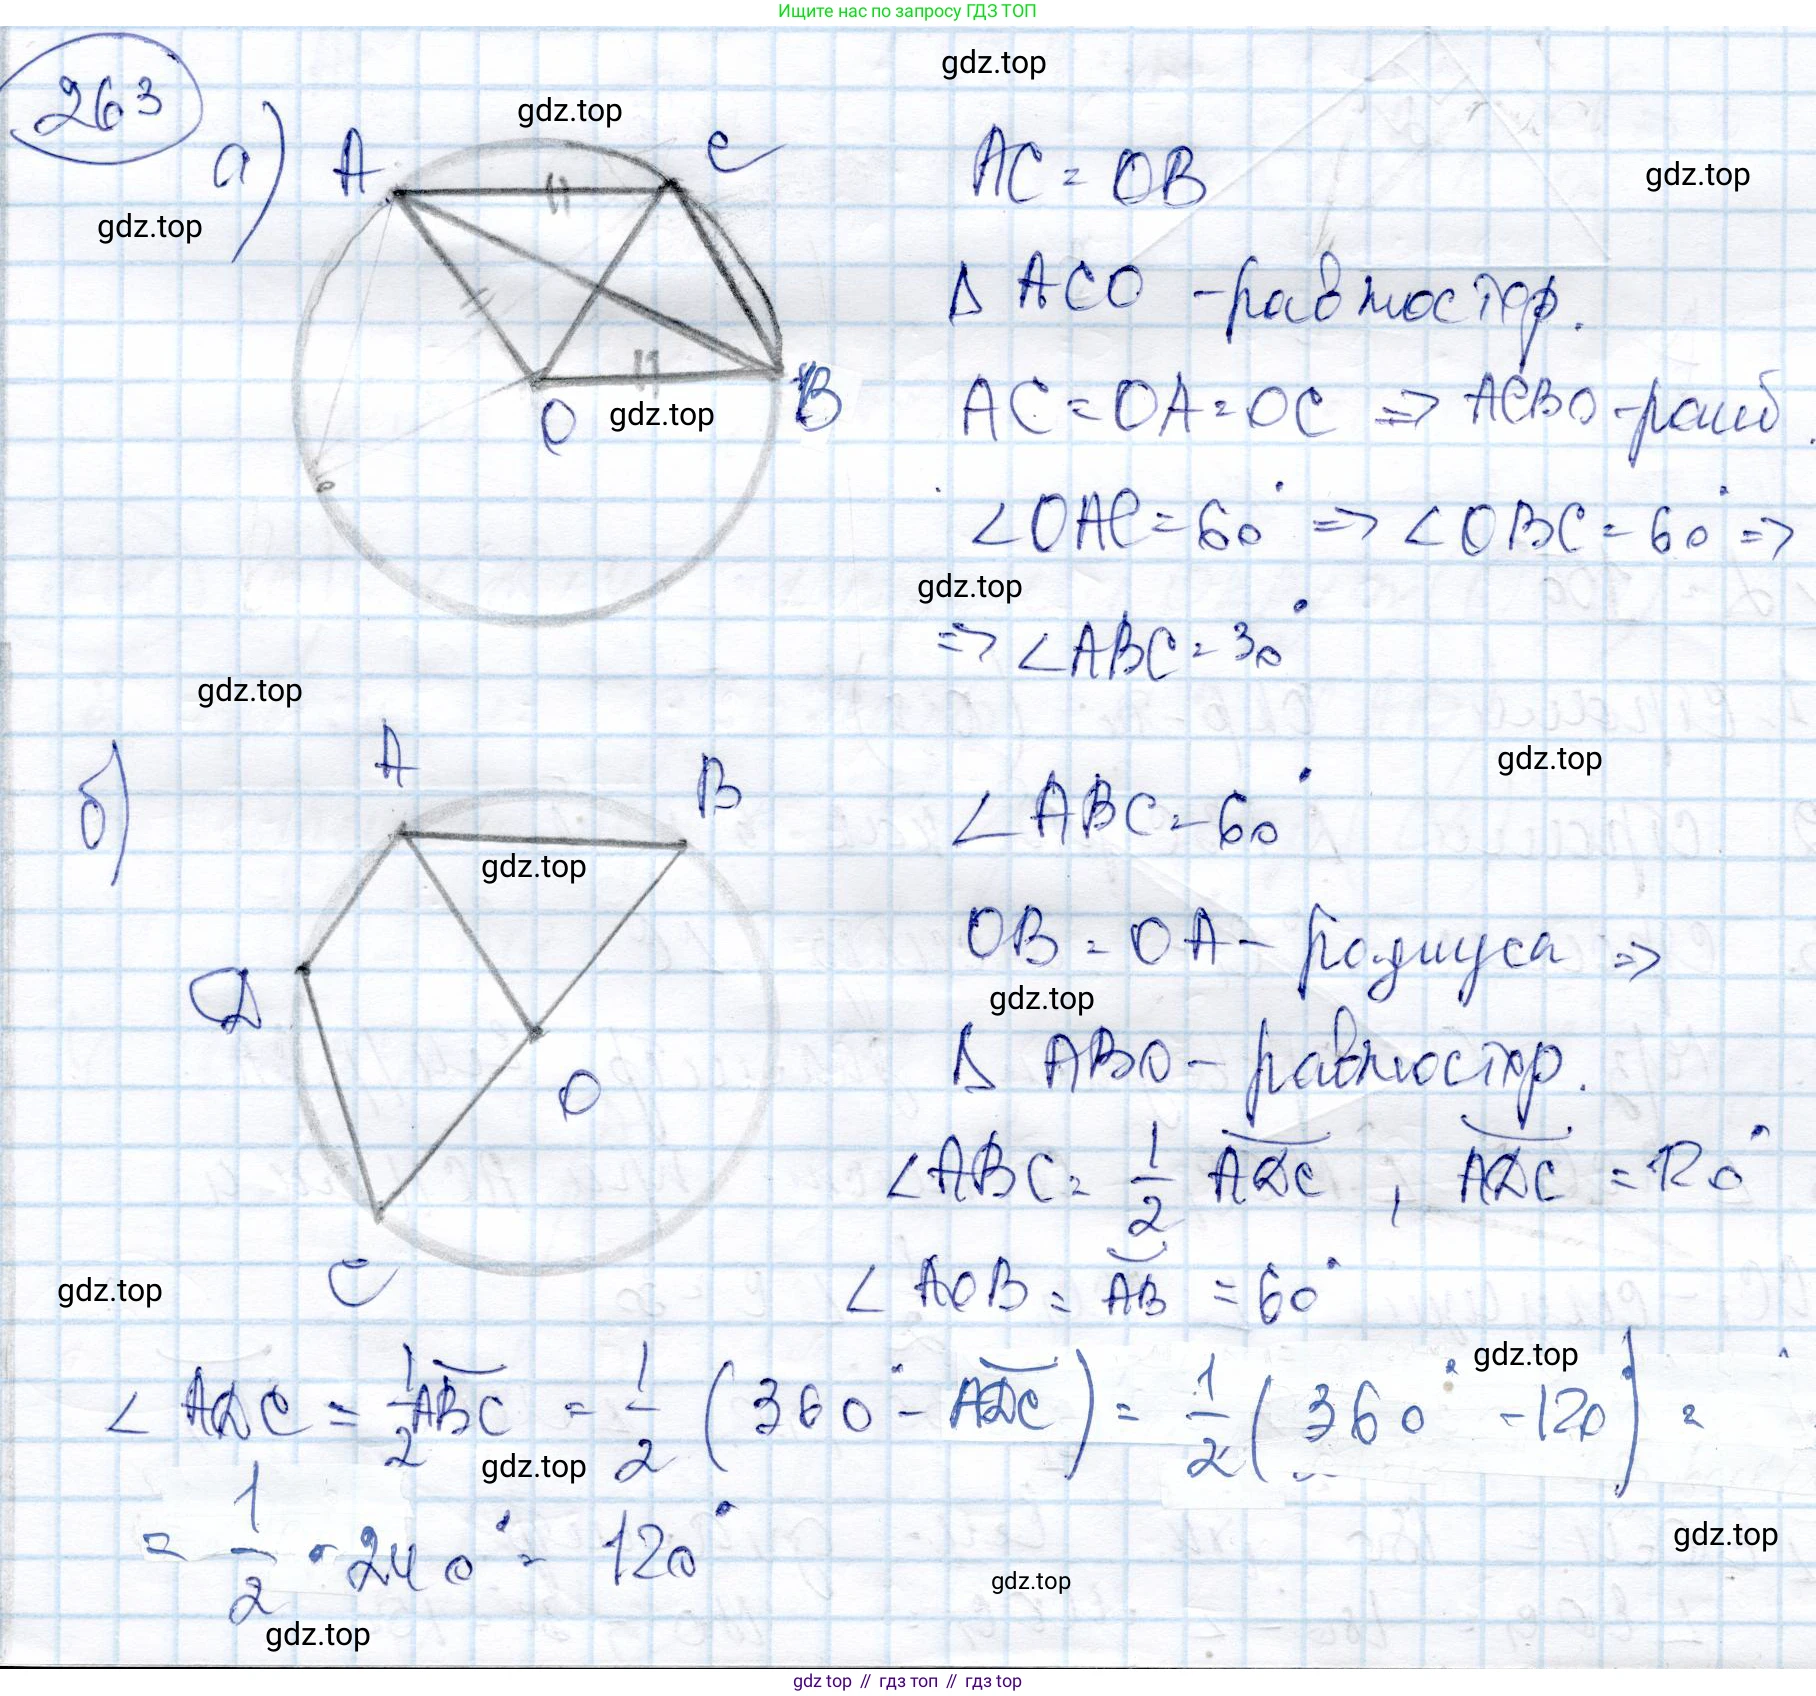 Ищите нас по запросу ГДЗ ТОП
263
gdz.top
gdz.top
а)
A
C
AC = OB
gdz.top
gdz.top
Δ ACO - равностор.
B
O
gdz.top
AC = OA = OC => ACBO - ромб.
∠OAC = 60° => ∠OBC = 60° =>
gdz.top
=> ∠ABC = 30°
gdz.top
б)
A
B
gdz.top
∠ABC = 60°
gdz.top
OB = OA - радиуса =>
D
gdz.top
Δ ABO - равностор.
O
∠ABC = 1/2 ADC, ADC = 120°
C
gdz.top
∠AOB = AB = 60°
gdz.top
∠ADC = 1/2 ABC = 1/2 (360° - ADC) = 1/2 (360° - 120) =
gdz.top
= 1/2 · 240° = 120°
gdz.top
gdz.top
gdz.top
gdz top // гдз топ // gdz top